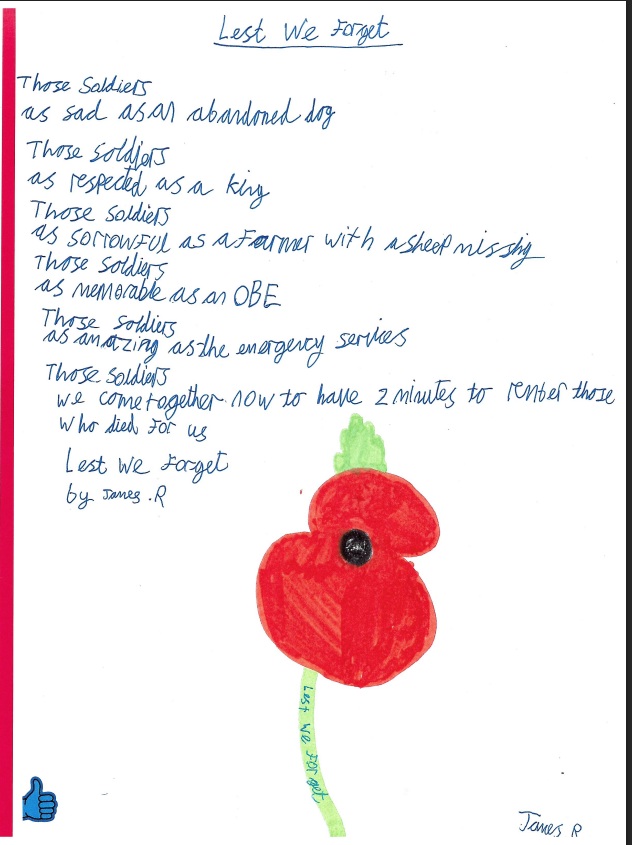 Lest We Forget
Those Soldiers
as sad as an abandoned dog
Those Soldiers
as respected as a king
Those Soldiers
as sorrowful as a farmer with a sheep missing
Those Soldiers
as memorable as an OBE
Those Soldiers
as amazing as the emergency services
Those Soldiers
we come together now to have 2 minutes to rember those
who died for us
Lest We Forget
by James .R
Lest we forget
James R